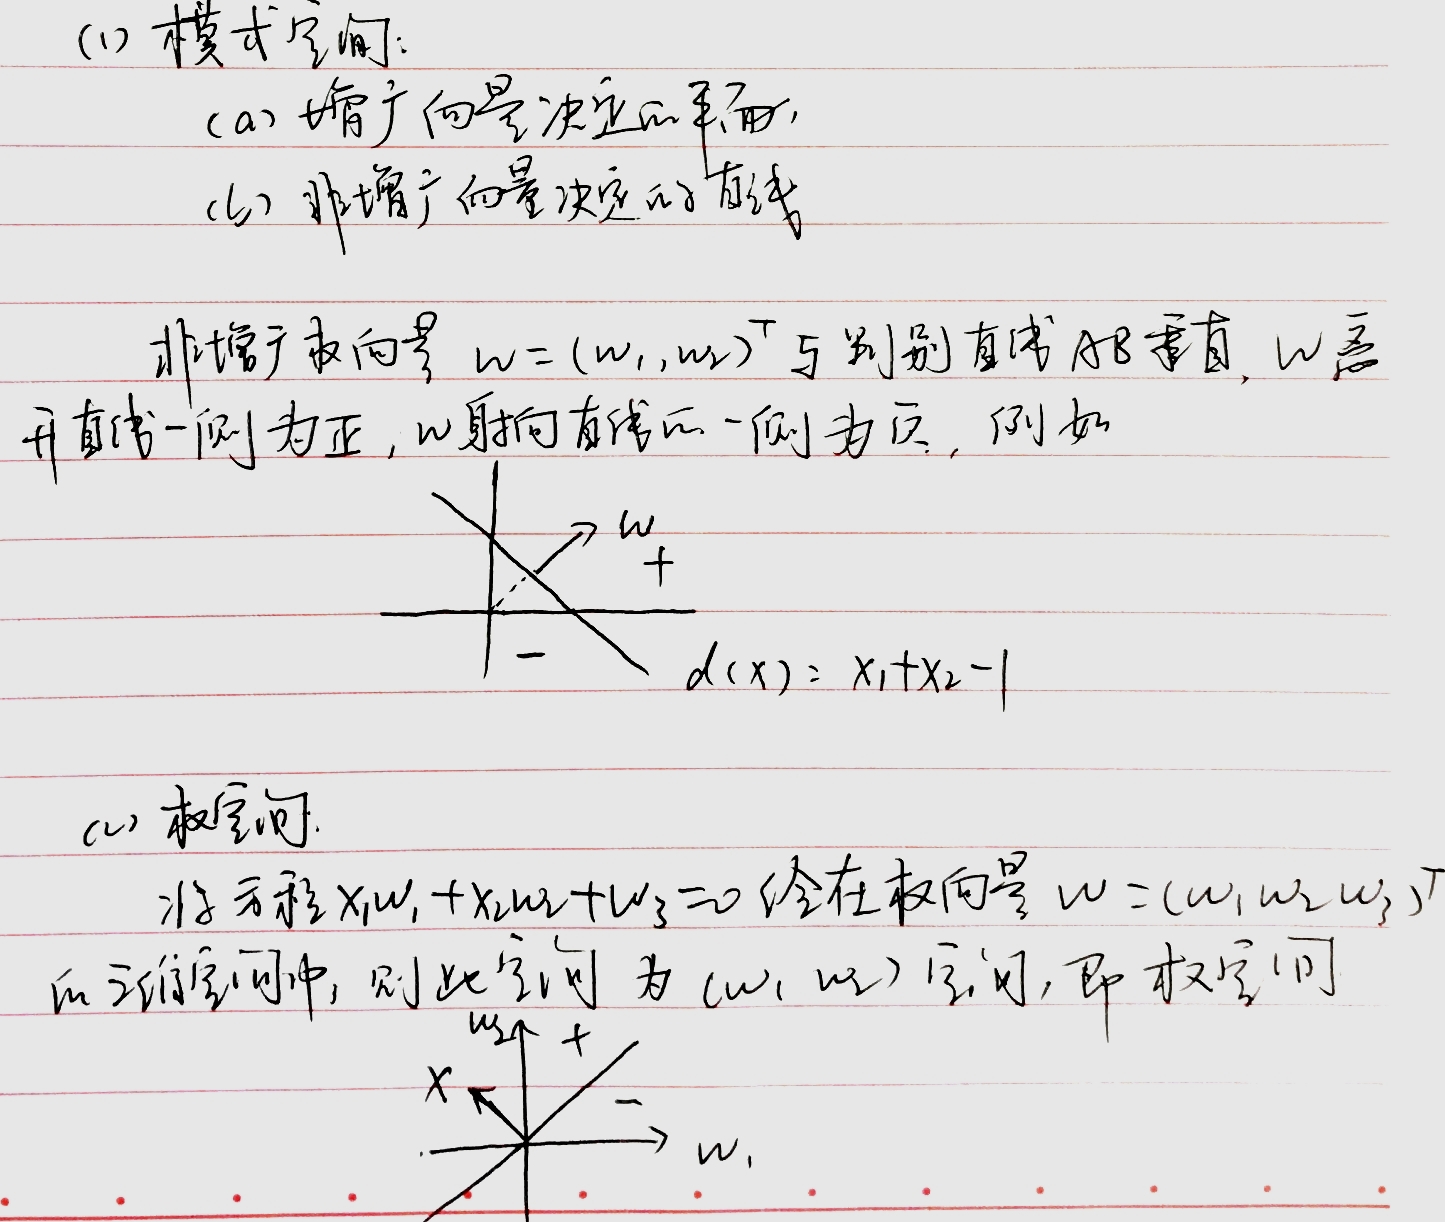 (1) 模式空间:
(a) 增广向量决定的平面,
(b) 非增广向量决定的直线
非增广权向量 w = (w₁, w₂)ᵀ 与判别直线 AB 垂直, W 离
开直线一侧为正, w 射向直线的一侧为负, 例如
w
+
−
d(x) = x₁+x₂-1
(2) 权空间.
将方程 x₁w₁+x₂w₂+w₃=0 绘在权向量 w = (w₁ w₂ w₃)ᵀ
的三维空间中, 则此空间为 (w₁ w₂) 空间, 即权空间
w₂ +
x
−
w₁